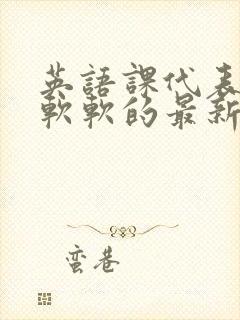 英語課代表
軟軟的最新
蛮巷